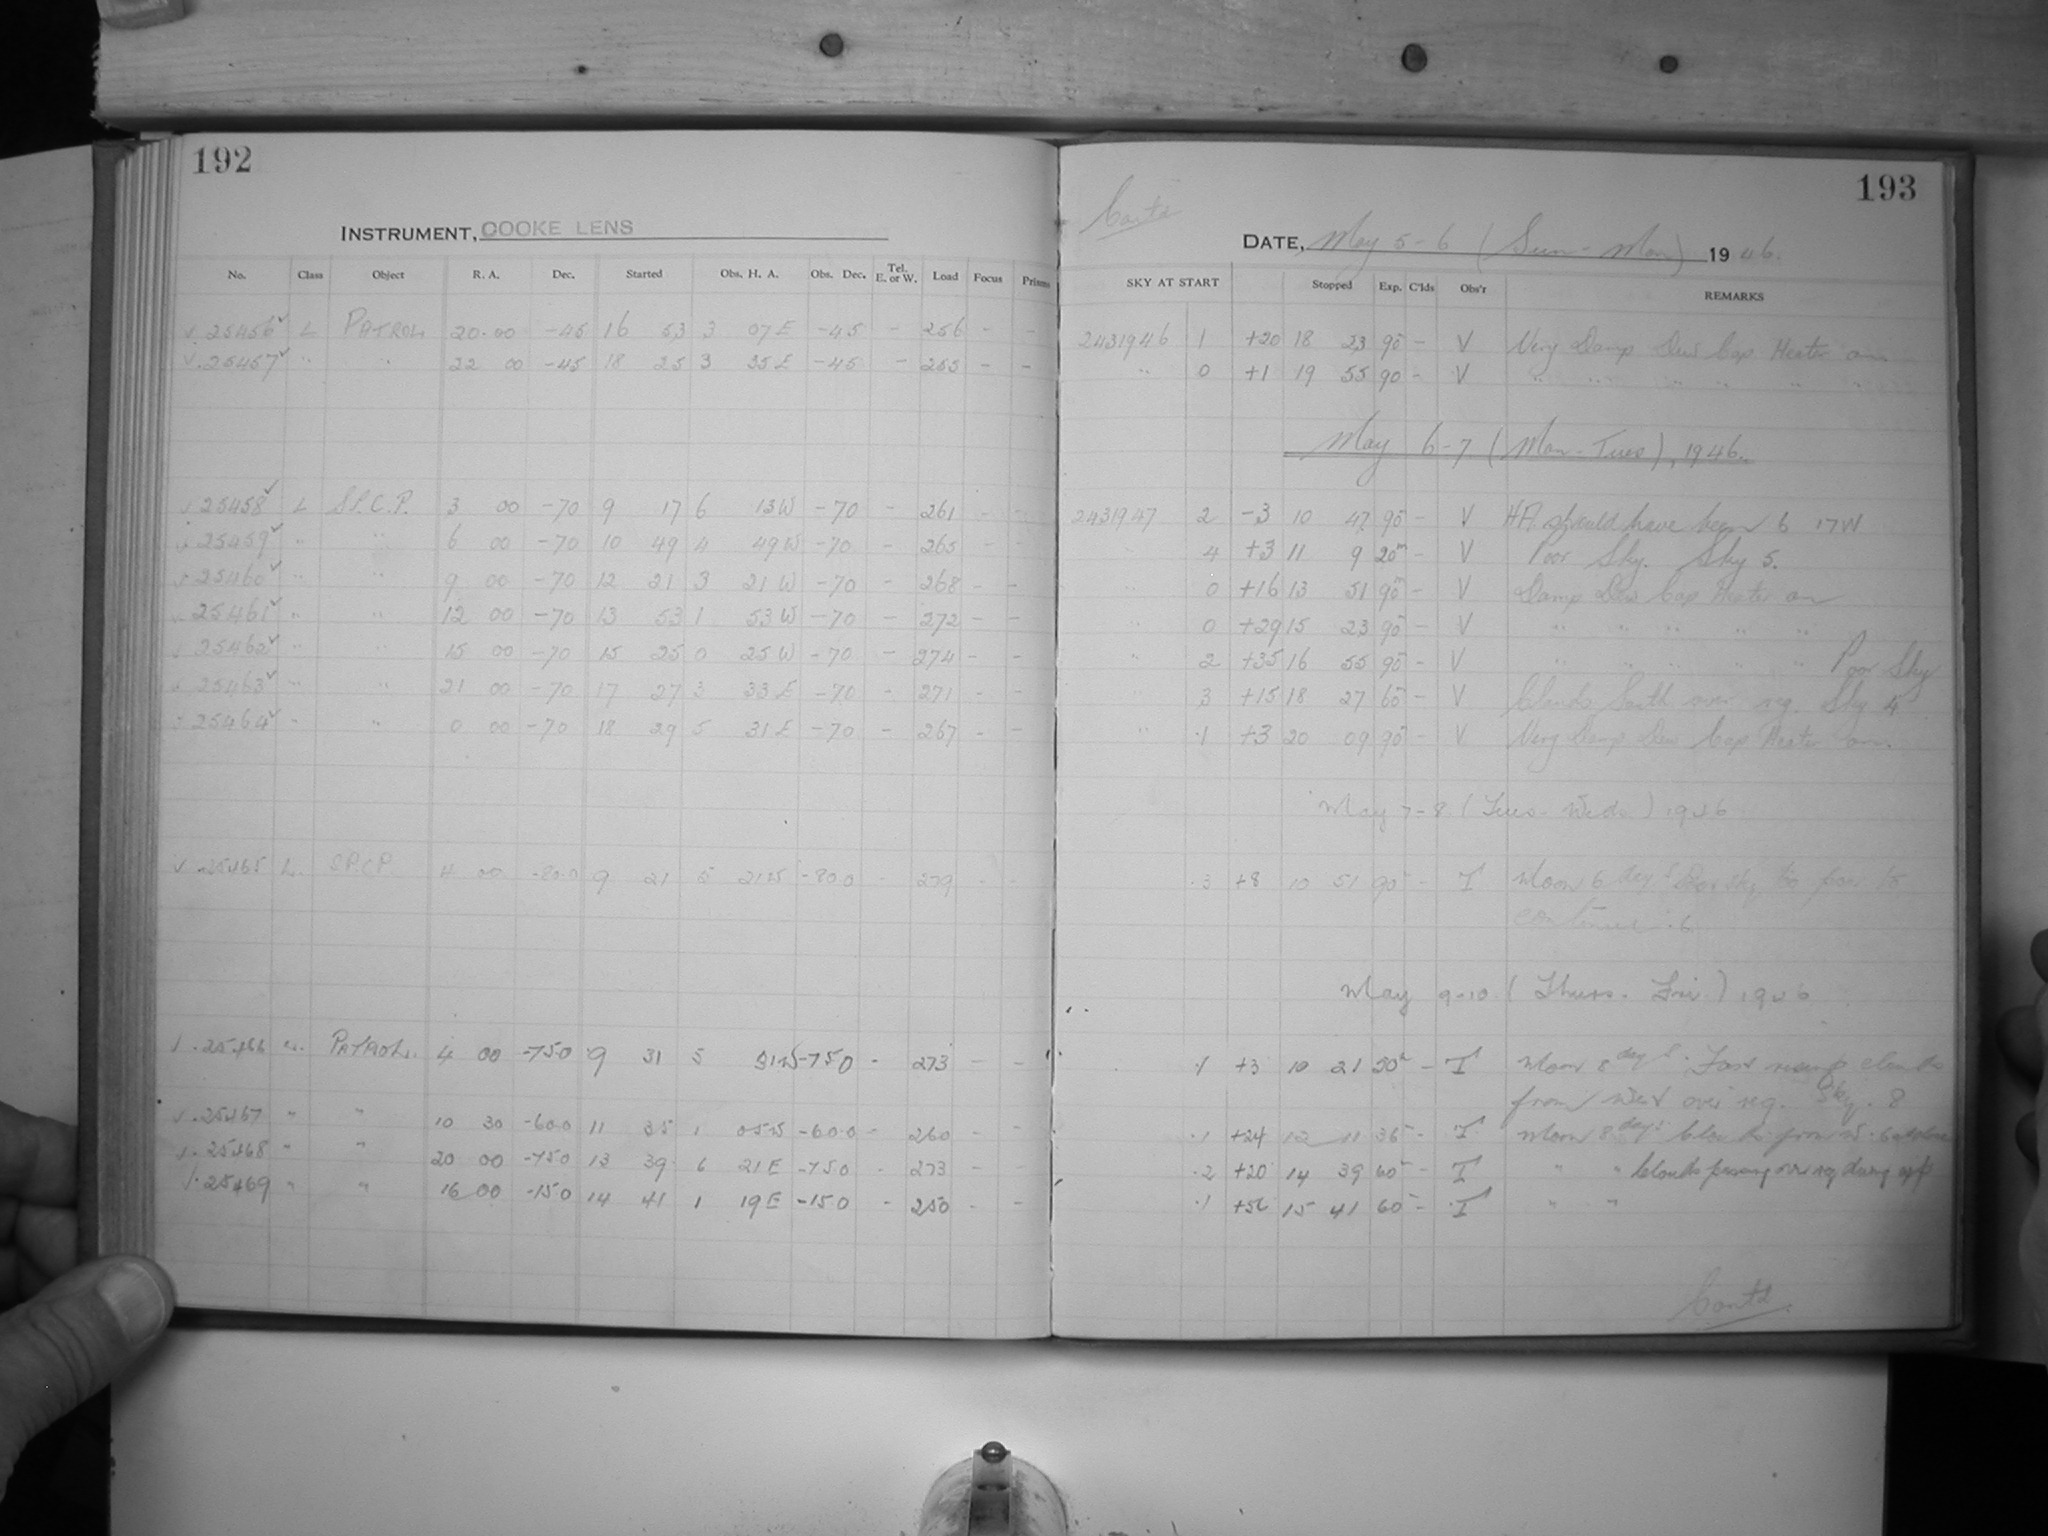 192
INSTRUMENT, COOKE LENS
No. Class Object R. A. Dec. Started Obs. H. A. Obs. Dec. Tel. E. or W. Load Focus Prisms
25456 L PATROL 20 00 -45 16 53 3 07 E -45 - 256 - -
25457 " " 22 00 -45 18 25 3 35 E -45 - 255 - -
25458 L S.P.C.P. 3 00 -70 9 17 6 13 W -70 - 261 -
25459 " " 6 00 -70 10 49 4 49 W -70 - 265 - -
25460 " " 9 00 -70 12 21 3 21 W -70 - 268 - -
25461 " " 12 00 -70 13 53 1 53 W -70 - 272 - -
25462 " " 15 00 -70 15 25 0 25 W -70 - 274 - -
25463 " " 21 00 -70 17 27 3 33 E -70 - 271 - -
25464 " " 0 00 -70 18 29 5 31 E -70 - 267 - -
25465 L. S.P.C.P. 4 00 -80.0 9 21 5 21 W -80.0 - 279 - -
25466 PATROL. 4 00 -75.0 9 31 5 31 W -75.0 - 273 - -
25467 " " 10 30 -60.0 11 35 1 05 W -60.0 - 260 - -
25468 " " 20 00 -75.0 13 39 6 21 E -75.0 - 273 - -
25469 " " 16 00 -15.0 14 41 1 19 E -15.0 - 250 - -
193
Cont'd
DATE, May 5-6 (Sun-Mon) 1946.
SKY AT START Stopped Exp. C'lds Obs'r REMARKS
2431946 1 +20 18 23 90 - V Very Damp Dew Cap Heater on
" 0 +1 19 55 90 - V " " " " " "
May 6-7 (Mon-Tues), 1946.
2431947 2 -3 10 47 90 - V HA should have been 6 17W
" 4 +3 11 9 20m - V Poor Sky. Sky 5.
" 0 +16 13 51 90 - V Damp Dew Cap Heater on
" 0 +29 15 23 90 - V " " " " "
" 2 +35 16 55 90 - V " " " " " Poor Sky
" 3 +15 18 27 60 - V Clouds South over reg. Sky 4
" .1 +3 20 09 90 - V Very Damp Dew Cap Heater on.
May 7-8 (Tues-Weds) 1946
.3 +8 10 51 90 - I Moon 6 days sky too poor to
continue .6
May 9-10 (Thurs. Fri.) 1946
.1 +3 10 21 50 - I Moon 8 days. Fast clouds
from West over reg. Sky .8
.1 +24 12 11 36 - I Moon 8 days clouds from W.
.2 +20 14 39 60 - I " " clouds passing over reg during exp
.1 +56 15 41 60 - I " "
Cont'd